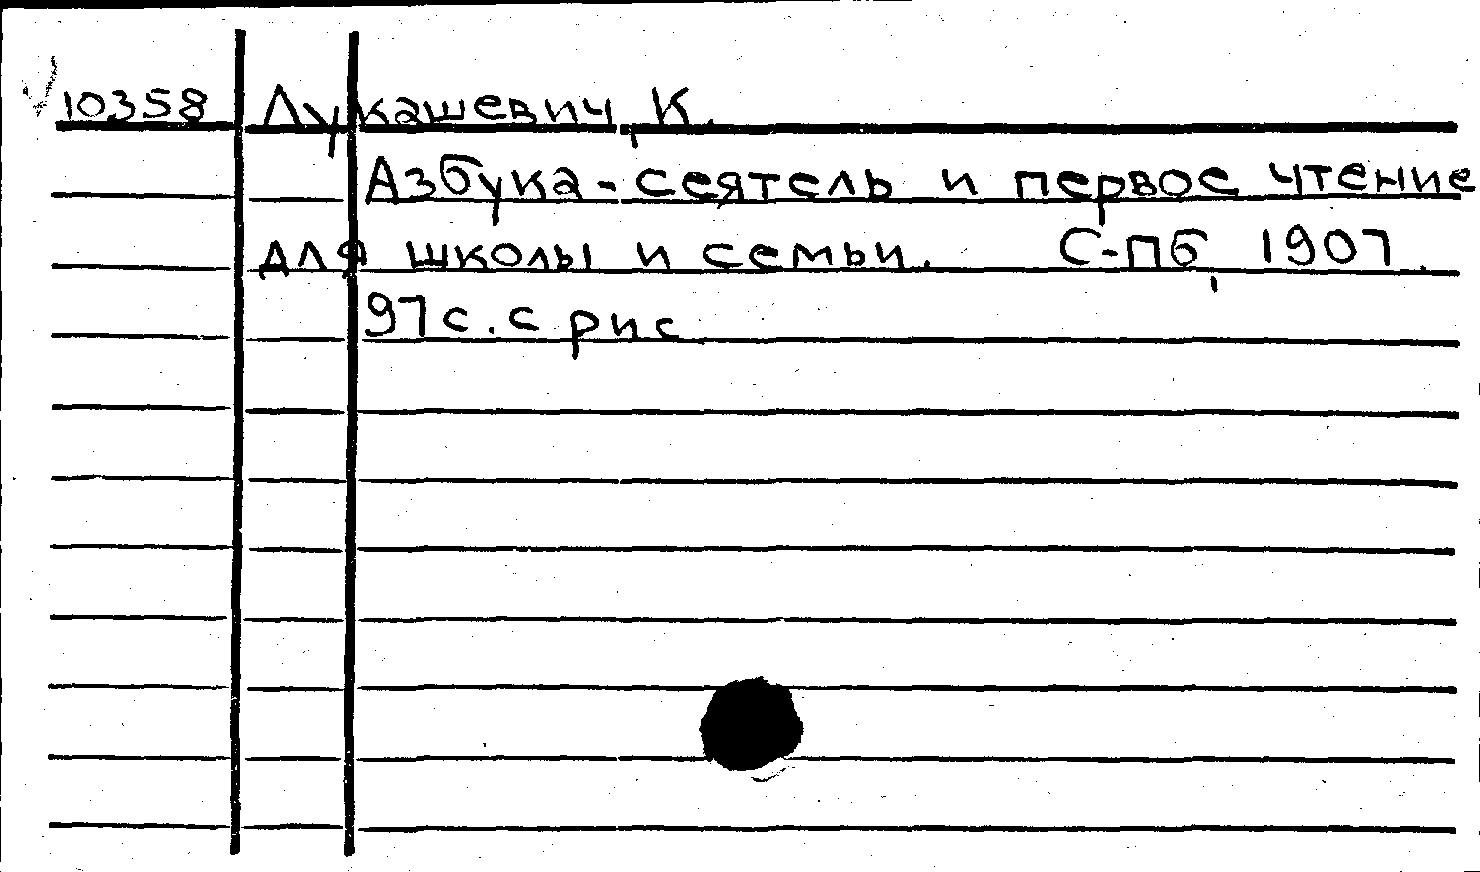 10358 Лукашевич, К.
Азбука-сеятель и первое чтение
для школы и семьи. С-Пб, 1907.
97 с. с рис